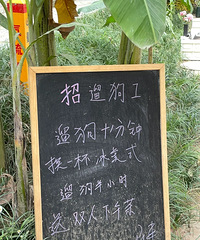 招遛狗工
遛狗十分钟
换一杯冰美式
遛狗半小时
送双人下午茶